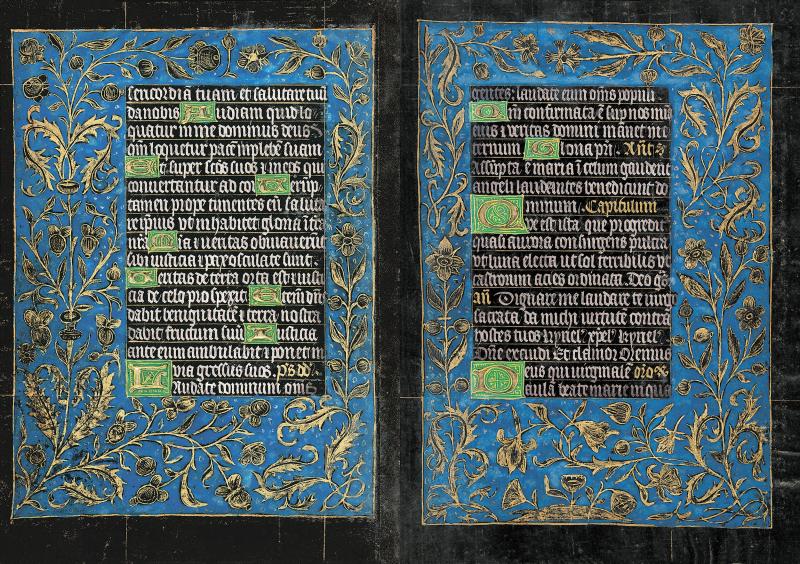 sericordiā tuam et salutare tuū
da nobis Audiam quid lo-
quatur in me dominus deus
qm̄ loquetur pacē in plebē suam
Et super scōs suos ⁊ in eos qui
convertantur ad cor Verūp-
tamen prope timentes eū saluta
re ip̄ius vt in habitet gloria ī ter
nr̄a Mīa ⁊ veritas obviaverūt
sibi iusticia ⁊ pax osculate sunt
Veritas de terra orta est ⁊ iusti
cia de celo prospexit Etem dn̄s
dabit benignitatē ⁊ terra nostra
dabit fructum suū Iusticia
ante eum ambulabit ⁊ ponet in
via gressus suos. ps dd
Laudate dominum om̄s
gentes: laudate eum om̄s populi
Qm̄ confirmata ē sup nos mi
eius ⁊ veritas domini manet in e
ternum Gloria pr̄i. Ant̄
Assūpta ē maria ī celum gaudent
angeli laudantes benedicunt do
minum. Capitulum
Que est ista que progredit
quasi aurora consurgens pulcra
vt luna electa ut sol terribilis vt
castrorum acies ordinata. Deo gr̄s
an̄ Dignare me laudare te virgo
sacrata. da michi virtutē contra
hostes tuos kyriel' xpel' kyriel'
Dn̄e exaudi Et clamor Oremus
Deus qui virginalē oro
aulā beate marie in qua